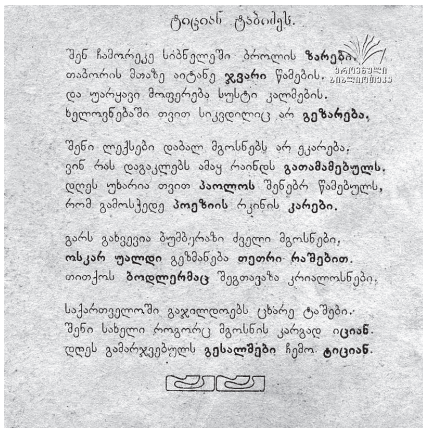 ტიციან ტაბიძეს.
შენ ჩამორეკე სიბნელეში ბროლის ზარები,
თაბორის მთაზე აიტანე ჯვარი წამების.
და უარყავი მოფერება სუსტი კალმების.
ხელოვნებაში თვით სიკვდილიც არ გეზარება,
შენი ლექსები დაბალ მგოსნებს არ ეკარება.
ვინ რას დაგაკლებს ამაყ რაინდს გათამამებულს.
დღეს უხარია თვით პაოლოს შენებრ წამებულს,
რომ გამოსჭედე პოეზიის რკინის კარები.
გარს გახვევია ბუმბერაზი ძველი მგოსნები,
ოსკარ უალდი გეზმანება თეთრი რაშებით.
თითქოს ბოდლერმაც შეგთავაზა კრიალოსნები.
საქართველოში გაჯილდოებს ცხარე ტაშები.
შენი სახელი როგორც მგოსნის კარგად იციან.
დღეს გამარჯვებულს გესალმები ჩემო ტიციან.
ეროვნული
ბიბლიოთეკა